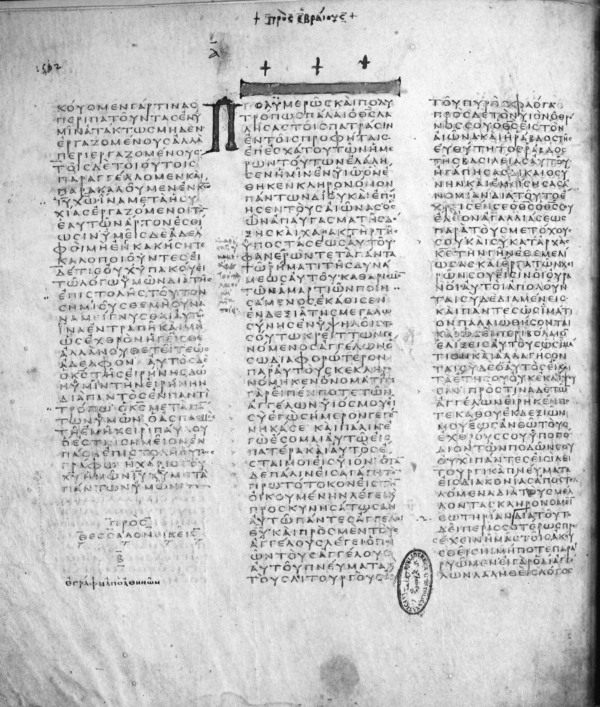 + πρὸς ἑβραίους +
1512
ΚΟΥΟΜΕΝΓΑΡΤΙΝΑϹ
ΠΕΡΙΠΑΤΟΥΝΤΑϹΕΝΥ
ΜΙΝΑΤΑΚΤΩϹΜΗΔΕΝ
ΕΡΓΑΖΟΜΕΝΟΥϹΑΛΛΑ
ΠΕΡΙΕΡΓΑΖΟΜΕΝΟΥϹ
ΤΟΙϹΔΕΤΟΙΟΥΤΟΙϹ
ΠΑΡΑΓΓΕΛΛΟΜΕΝΚΑΙ
ΠΑΡΑΚΑΛΟΥΜΕΝΕΝΚΩ
ΙΥΧΩΙΝΑΜΕΤΑΗϹΥ
ΧΙΑϹΕΡΓΑΖΟΜΕΝΟΙΤΟ
ΕΑΥΤΩΝΑΡΤΟΝΕϹΘΙ
ΩϹΙΝΥΜΕΙϹΔΕΑΔΕΛ
ΦΟΙΜΗΕΝΚΑΚΗϹΗΤΕ
ΚΑΛΟΠΟΙΟΥΝΤΕϹΕΙ
ΔΕΤΙϹΟΥΧΥΠΑΚΟΥΕΙ
ΤΩΛΟΓΩΥΜΩΝΔΙΑΤΗϹ
ΕΠΙϹΤΟΛΗϹΤΟΥΤΟΝ
ϹΗΜΙΟΥϹΘΕΜΗϹΥΝΑ
ΝΑΜΕΙΓΝΥϹΘΑΙΑΥΤΩ
ΙΝΑΕΝΤΡΑΠΗΚΑΙΜΗ
ΩϹΕΧΘΡΟΝΗΓΕΙϹΘΕ
ΑΛΛΑΝΟΥΘΕΤΕΙΤΕΩϹ
ΑΔΕΛΦΟΝΑΥΤΟϹΔΕ
ΟΚϹΤΗϹΕΙΡΗΝΗϹΔΩ
ΗΥΜΙΝΤΗΝΕΙΡΗΝΗΝ
ΔΙΑΠΑΝΤΟϹΕΝΠΑΝΤΙ
ΤΡΟΠΩΟΚϹΜΕΤΑΠΑΝ
ΤΩΝΥΜΩΝΟΑϹΠΑϹΜΟϹ
ΤΗΕΜΗΧΕΙΡΙΠΑΥΛΟΥ
ΟΕϹΤΙΝϹΗΜΕΙΟΝΕΝ
ΠΑϹΗΕΠΙϹΤΟΛΗΟΥΤΩϹ
ΓΡΑΦΩΗΧΑΡΙϹΤΟΥ
ΚΥΗΜΩΝΙΥΧΥΜΕΤΑ
ΠΑΝΤΩΝΥΜΩΝ
ΠΡΟϹ
ΘΕϹϹΑΛΟΝΙΚΕΙϹ
Β
ἐγράφη ἀπὸ ἀθηνῶν
ΠΟΛΥΜΕΡΩϹΚΑΙΠΟΛΥ
ΤΡΟΠΩϹΠΑΛΑΙΟΘϹΛΑ
ΛΗϹΑϹΤΟΙϹΠΑΤΡΑϹΙΝ
ΕΝΤΟΙϹΠΡΟΦΗΤΑΙϹ
ΕΠΕϹΧΑΤΟΥΤΩΝΗΜΕ
ΡΩΝΤΟΥΤΩΝΕΛΑΛΗ
ϹΕΝΗΜΙΝΕΝΥΙΩΟΝΕ
ΘΗΚΕΝΚΛΗΡΟΝΟΜΟΝ
ΠΑΝΤΩΝΔΙΟΥΚΑΙΕΠΟΙ
ΗϹΕΝΤΟΥϹΑΙΩΝΑϹΟϹ
ΩΝΑΠΑΥΓΑϹΜΑΤΗϹΔΟ
ΞΗϹΚΑΙΧΑΡΑΚΤΗΡΤΗϹ
ΥΠΟϹΤΑϹΕΩϹΑΥΤΟΥ
ΦΑΝΕΡΩΝΤΕΤΑΠΑΝΤΑ
ΤΩΡΗΜΑΤΙΤΗϹΔΥΝΑ
ΜΕΩϹΑΥΤΟΥΚΑΘΑΡΙϹΜΟΝ
ΤΩΝΑΜΑΡΤΙΩΝΠΟΙΗ
ϹΑΜΕΝΟϹΕΚΑΘΙϹΕΝ
ΕΝΔΕΞΙΑΤΗϹΜΕΓΑΛΩ
ϹΥΝΗϹΕΝΥΨΗΛΟΙϹΤΟ
ϹΟΥΤΩΚΡΕΙΤΤΩΝΓΕ
ΝΟΜΕΝΟϹΑΓΓΕΛΩΝΟ
ϹΩΔΙΑΦΟΡΩΤΕΡΟΝ
ΠΑΡΑΥΤΟΥϹΚΕΚΛΗΡΟ
ΝΟΜΗΚΕΝΟΝΟΜΑΤΙΝΙ
ΓΑΡΕΙΠΕΝΠΟΤΕΤΩΝ
ΑΓΓΕΛΩΝΥΙΟϹΜΟΥΕΙ
ϹΥΕΓΩϹΗΜΕΡΟΝΓΕΓΕΝ
ΝΗΚΑϹΕΚΑΙΠΑΛΙΝΕ
ΓΩΕϹΟΜΑΙΑΥΤΩΕΙϹ
ΠΑΤΕΡΑΚΑΙΑΥΤΟϹΕ
ϹΤΑΙΜΟΙΕΙϹΥΙΟΝΟΤΑ
ΔΕΠΑΛΙΝΕΙϹΑΓΑΓΗΤΟ
ΠΡΩΤΟΤΟΚΟΝΕΙϹΤΗ
ΟΙΚΟΥΜΕΝΗΝΛΕΓΕΙΚΑΙ
ΠΡΟϹΚΥΝΗϹΑΤΩϹΑΝ
ΑΥΤΩΠΑΝΤΕϹΑΓΓΕΛΟΙ
ΘΥΚΑΙΠΡΟϹΜΕΝΤΟΥϹ
ΑΓΓΕΛΟΥϹΛΕΓΕΙΟΠΟΙ
ΩΝΤΟΥϹΑΓΓΕΛΟΥϹ
ΑΥΤΟΥΠΝΕΥΜΑΤΑΚΑΙ
ΤΟΥϹΛΙΤΟΥΡΓΟΥϹΑΥ
ΤΟΥΠΥΡΟϹΦΛΟΓΑ
ΠΡΟϹΔΕΤΟΝΥΙΟΝΟΘΡΟ
ΝΟϹϹΟΥΟΘϹΕΙϹΤΟΝ
ΑΙΩΝΑΚΑΙΗΡΑΒΔΟϹΤΗϹ
ΕΥΘΥΤΗΤΟϹΡΑΒΔΟϹ
ΤΗϹΒΑϹΙΛΕΙΑϹΑΥΤΟΥ
ΗΓΑΠΗϹΑϹΔΙΚΑΙΟϹΥ
ΝΗΝΚΑΙΕΜΙϹΗϹΑϹΑ
ΝΟΜΙΑΝΔΙΑΤΟΥΤΟΕ
ΧΡΙϹΕΝϹΕΟΘϹΟΘϹϹΟΥ
ΕΛΕΟΝΑΓΑΛΛΙΑϹΕΩϹ
ΠΑΡΑΤΟΥϹΜΕΤΟΧΟΥϹ
ϹΟΥΚΑΙϹΥΚΑΤΑΡΧΑϹ
ΚΕΤΗΝΓΗΝΕΘΕΜΕΛΙ
ΩϹΑϹΚΑΙΕΡΓΑΤΩΝΧΕΙ
ΡΩΝϹΟΥΕΙϹΙΝΟΙΟΥΡΑ
ΝΟΙΑΥΤΟΙΑΠΟΛΟΥΝ
ΤΑΙϹΥΔΕΔΙΑΜΕΝΕΙϹ
ΚΑΙΠΑΝΤΕϹΩϹΙΜΑΤΙ
ΟΝΠΑΛΑΙΩΘΗϹΟΝΤΑΙ
ΚΑΙΩϹΕΙΠΕΡΙΒΟΛΑΙΟΝ
ΕΛΙΞΕΙϹΑΥΤΟΥϹΩϹΙΜΑ
ΤΙΟΝΚΑΙΑΛΛΑΓΗϹΟΝ
ΤΑΙϹΥΔΕΟΑΥΤΟϹΕΙΚΑΙ
ΤΑΕΤΗϹΟΥΟΥΚΕΚΛΕΙΨΟΥ
ϹΙΝΠΡΟϹΤΙΝΑΔΕΤΩΝ
ΑΓΓΕΛΩΝΕΙΡΗΚΕΝΠΟ
ΤΕΚΑΘΟΥΕΚΔΕΞΙΩΝ
ΜΟΥΕΩϹΑΝΘΩΤΟΥϹ
ΕΧΘΡΟΥϹϹΟΥΥΠΟΠΟ
ΔΙΟΝΤΩΝΠΟΔΩΝϹΟΥ
ΟΥΧΙΠΑΝΤΕϹΕΙϹΙΛΕΙ
ΤΟΥΡΓΙΚΑΠΝΕΥΜΑΤΑ
ΕΙϹΔΙΑΚΟΝΙΑϹΑΠΟϹΤΕΛ
ΛΟΜΕΝΑΔΙΑΤΟΥϹΜΕΛ
ΛΟΝΤΑϹΚΛΗΡΟΝΟΜΕΙΝ
ϹΩΤΗΡΙΑΝΔΙΑΤΟΥΤΟ
ΔΕΙΠΕΡΙϹϹΟΤΕΡΩϹΠΡΟϹ
ΕΧΕΙΝΗΜΑϹΤΟΙϹΑΚΟΥ
ϹΘΕΙϹΙΜΗΠΟΤΕΠΑΡΑ
ΡΥΩΜΕΝΕΙΓΑΡΟΔΙΑΓΓΕ
ΛΩΝΛΑΛΗΘΕΙϹΛΟΓΟϹ